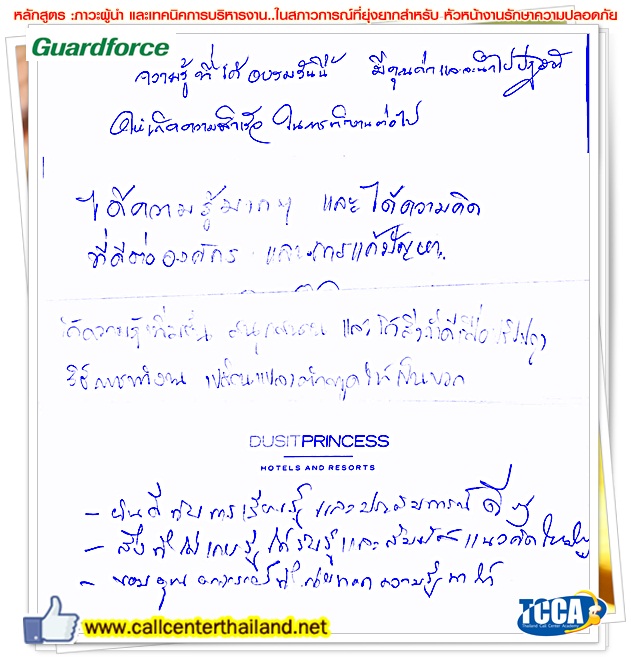 หลักสูตร :ภาวะผู้นำ และเทคนิคการบริหารงาน..ในสภาวการณ์ที่ยุ่งยากสำหรับ หัวหน้างานรักษาความปลอดภัย
Guardforce
ความรู้ ที่ได้ อบรมวันนี้ มีคุณค่าและจะนำไปปฏิบัติ
ให้เกิดความสำเร็จ ในการทำงานต่อไป
ได้ความรู้มากๆ และได้ความคิด
ที่ดีต่อองค์กร และการแก้ปัญหา
ได้ความรู้เพิ่มเติม สนุกสนาน และได้สิ่งที่ดี
วิธีการทำงาน เปลี่ยนแปลง ให้เป็นบวก
DUSIT PRINCESS
HOTELS AND RESORTS
- ยินดีกับการเรียนรู้ และประสบการณ์ ดีๆ
- สิ่งที่ไม่เคยรู้ ได้รับรู้และสัมผัส แนวคิดใหม่ๆ
- ขอบคุณ อาจารย์ที่ ความรู้ ให้
www.callcenterthailand.net
TCCA
Thailand Call Center Academy